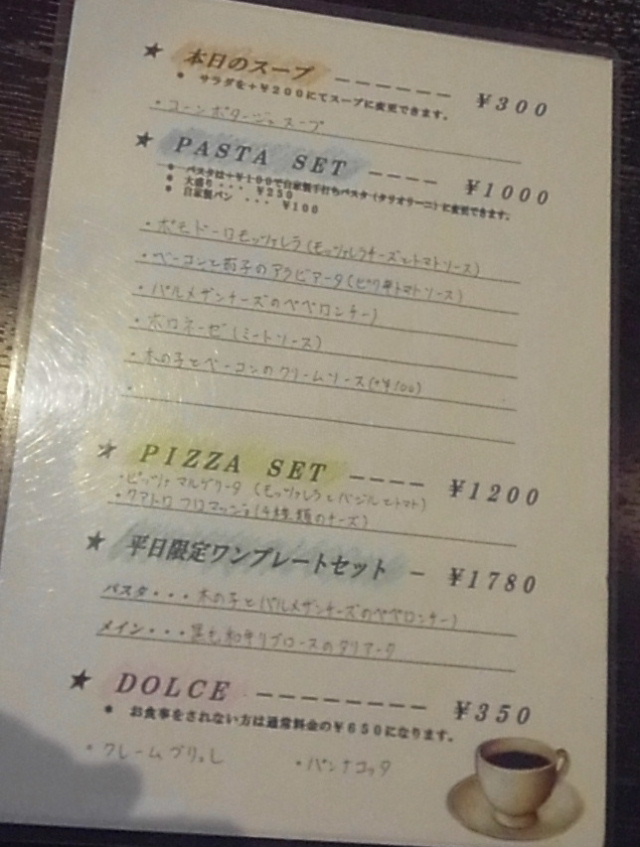 ★ 本日のスープ ------ ¥300
* サラダを+¥200にてスープに変更できます。
・コーンポタージュスープ
★ PASTA SET ---- ¥1000
* パスタは+¥100で自家製手打ちパスタ(タリオリーニ)に変更できます。
* 大盛り ・・・ ¥250
* 自家製パン ・・・ ¥100
・ポモドーロモッツァレラ(モッツァレラチーズとトマトソース)
・ベーコンと茄子のアラビアータ(ピリ辛トマトソース)
・パルメザンチーズのペペロンチーノ
・ボロネーゼ(ミートソース)
・木の子とベーコンのクリームソース(+¥100)
・
★ PIZZA SET ---- ¥1200
・ピッツァ マルゲリータ (モッツァレラとバジルとトマト)
・クアトロ フロマッジュ(4種類のチーズ)
★ 平日限定ワンプレートセット - ¥1780
パスタ・・・木の子とパルメザンチーズのペペロンチーノ
メイン・・・黒毛和牛リブロースのタリアータ
★ DOLCE -------- ¥350
* お食事をされない方は通常料金の¥650になります。
・クレームブリュレ ・パンナコッタ